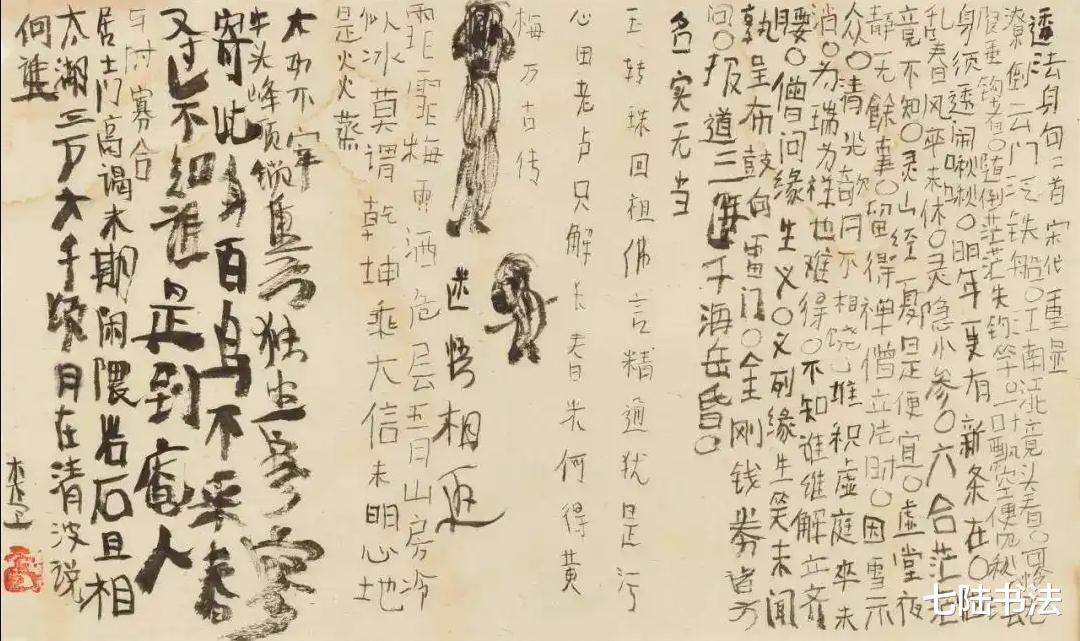 透法身句二首 宋代重显
潦倒云门泛铁船〇江南江北竞头看〇可怜
限垂钩者〇随倒茫茫失钓竿〇一
身须透闹啾啾〇明年更有新条在〇
乱春风卒未休〇灵隐小参〇六合茫茫
竟不知〇灵山经夏是便宜〇虚堂夜
静无餘事〇留得禅僧立法时〇因雪示
众〇清光不相饶〇堆积虚庭卒未
消〇为瑞为祥也难得〇不知谁解立齐
腰〇僧问缘生义〇义列缘生笑未闻
孰呈布鼓向雷门〇金刚铁券
问〇报道三千海岳昏〇
色空无当
玉转珠回祖佛言精通犹是污
心田老卢只解长舂米何得黄
梅万古传
迷悟相返
霏霏梅雨洒危层五月山房冷
似冰莫谓乾坤乖大信未明心地
是火火蒸
大功不宰
牛头峰顶锁重云独坐寥寥
寄此身百鸟不来春
又过不知谁是到庵人
与时寡合
居士门高谒未期闲隈岩石且相
太湖三万六千顷月在清波说
何谁
七陆书法